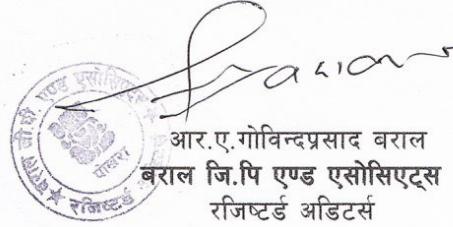 आर.ए.गोविन्दप्रसाद बराल
बराल जि.पि एण्ड एसोसिएट्स
रजिष्टर्ड अडिटर्स
बराल जी.पी. एण्ड एसोसिएट्स
पोखरा
रजिष्टर्ड